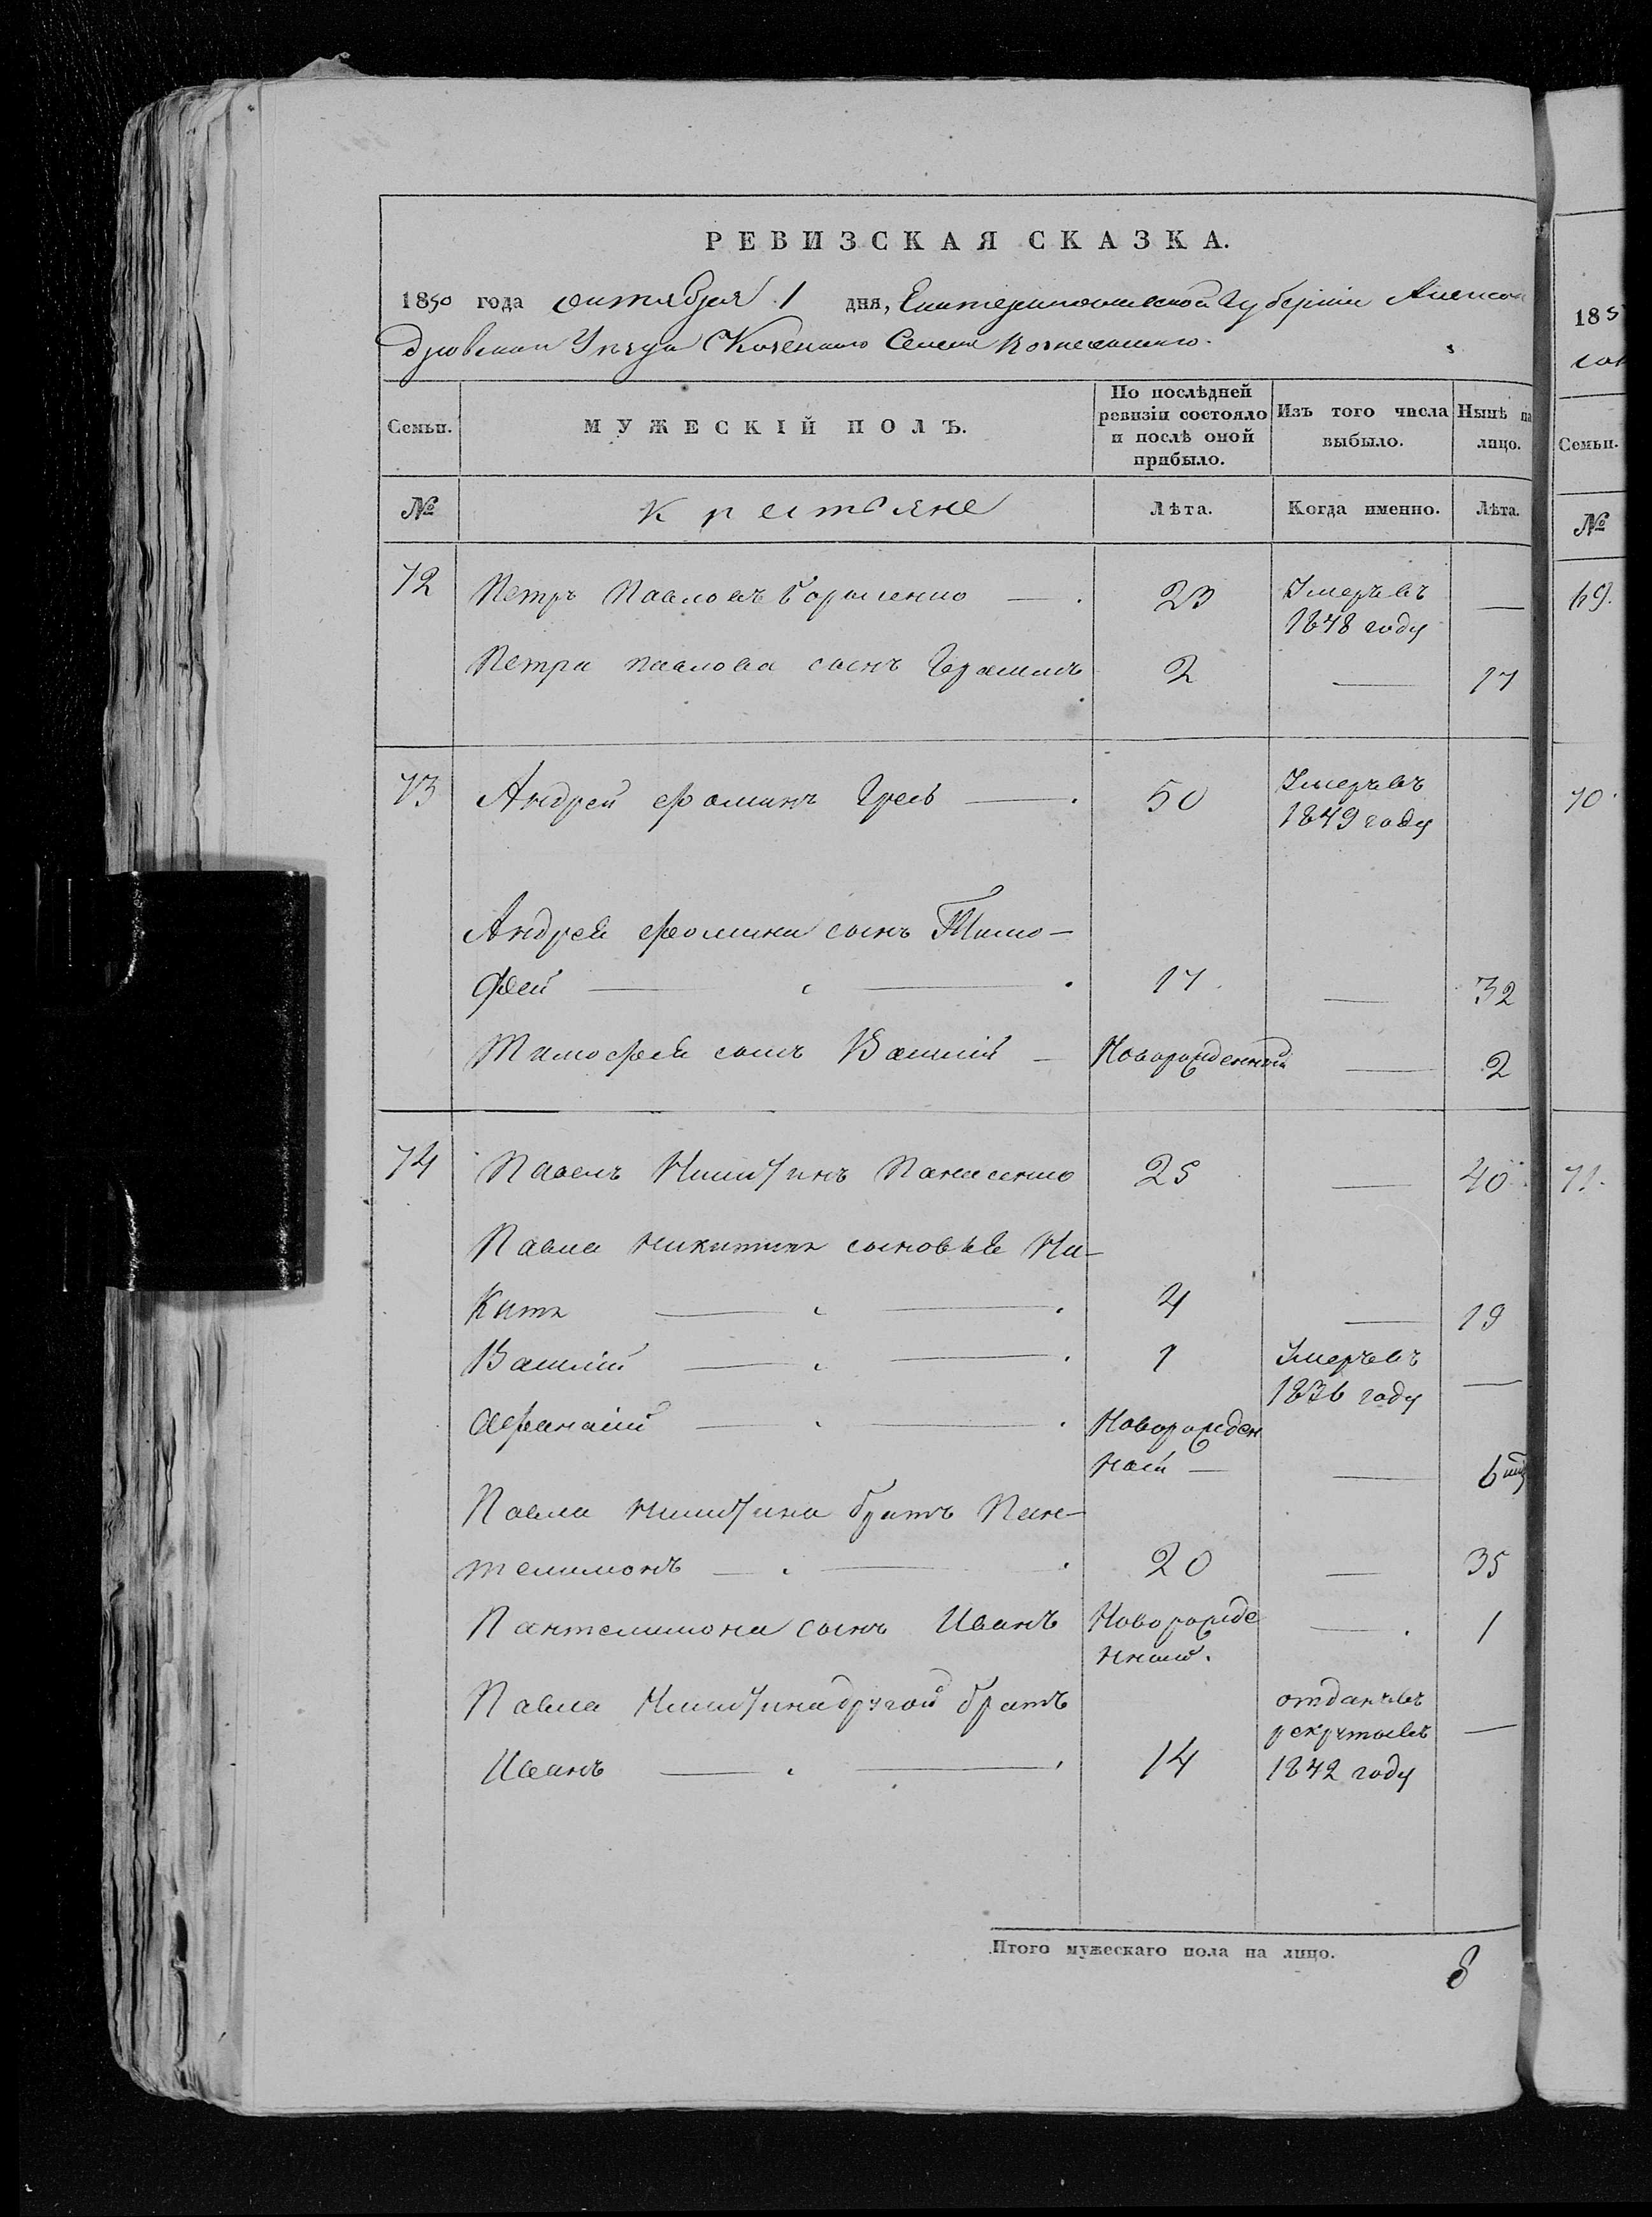 РЕВИЗСКАЯ СКАЗКА.
1850 года октября 1 дня, Екатеринославской Губерніи Алексан
дровскаго Уезда Казеннаго Селенія Вознесенскаго.
Семьи. МУЖЕСКІЙ ПОЛЪ. По послѣдней ревизіи состояло и послѣ оной прибыло. Изъ того числа выбыло. Нынѣ на лицо.
№ Крестьяне Лѣта. Когда именно. Лѣта.
72 Петръ Павловъ 23 Умеръ въ
1848 году —
Петра Павлова сынъ Герасимъ 2 — 17
73 Андрей Фоминъ 50 Умеръ въ
1849 году
Андрея Фомина сынъ Тимо-
фей 17 — 32
Тимофея сынъ Василій Новорожденный — 2
74 Павелъ Никитинъ Панасенко 25 — 40
Павла Никитина сыновья Ни-
Кита 4 — 19
Василій 1 Умеръ въ
1836 году —
Афанасій Новорожден
ный — 6
Павла Никитина братъ Пан-
телимонъ 20 — 35
Пантелимона сынъ Иванъ Новорожде
нный. — 1
Павла Никитина другой братъ
Иванъ 14 отданъ въ
рекруты въ
1842 году —
Итого мужескаго пола на лицо. 8
185
Семьи.
№
69.
70.
71.